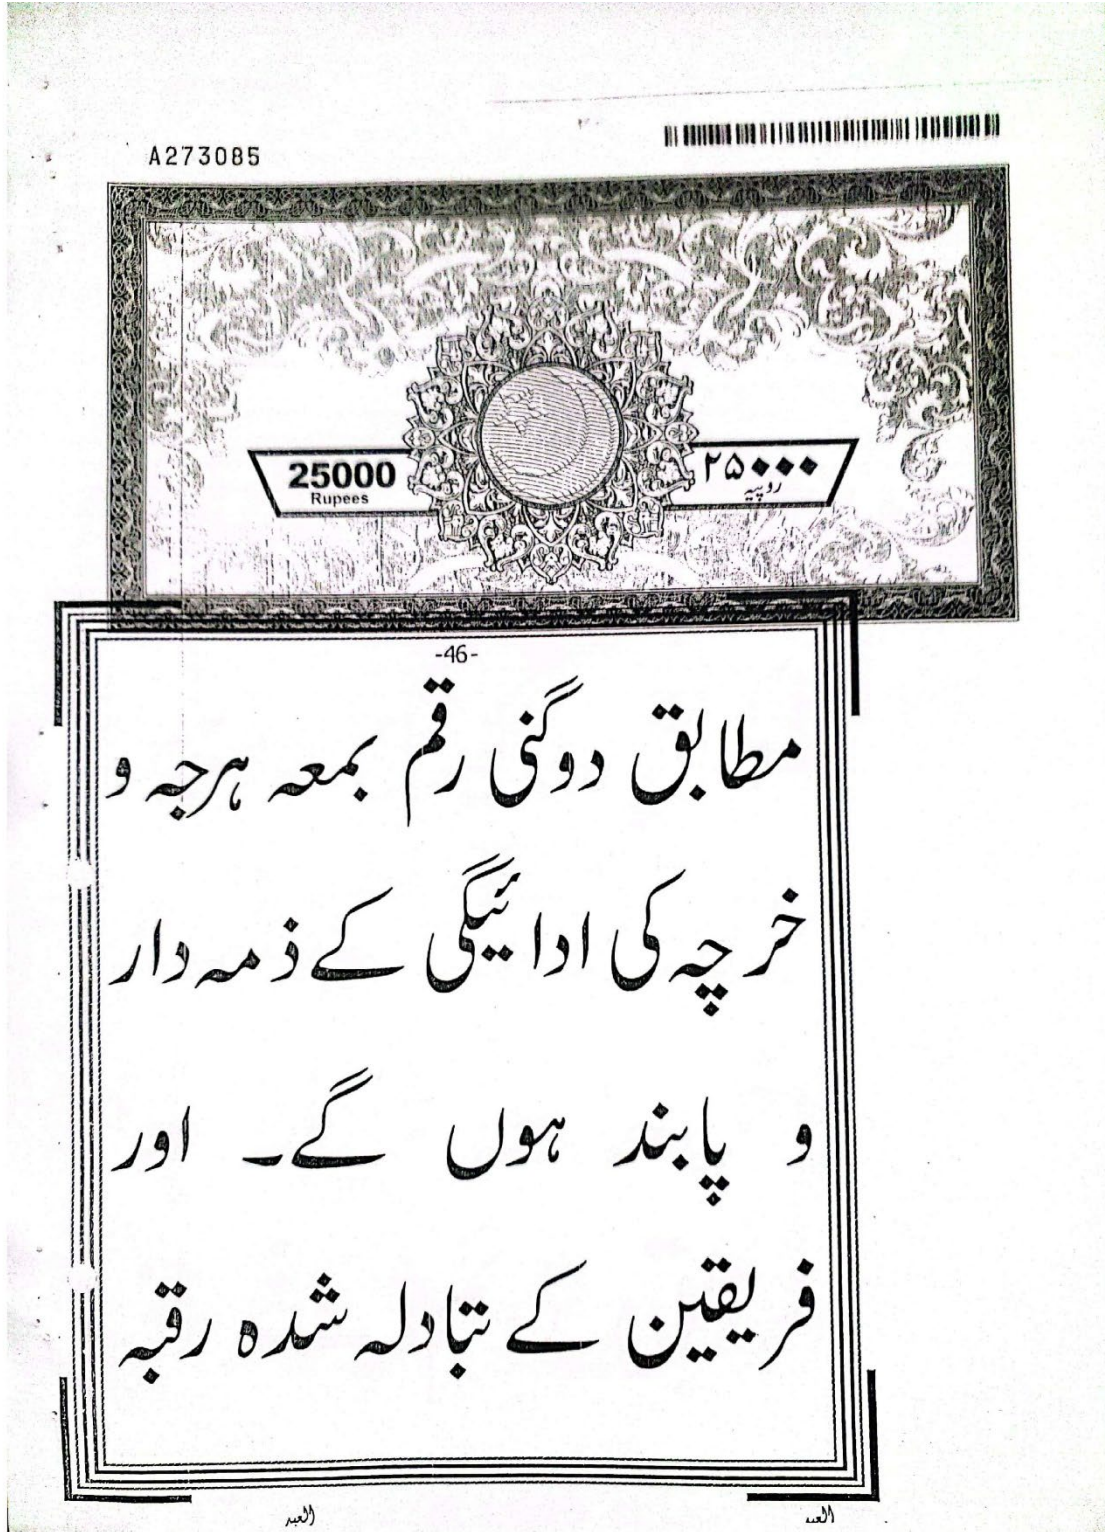 A273085
25000
Rupees
۲۵۰۰۰
روپیہ
-46-
مطابق دوگنی رقم بمعہ ہرجہ و
خرچہ کی ادائیگی کے ذمہ دار
و پابند ہوں گے۔ اور
فریقین کے تبادلہ شدہ رقبہ
العبد
العبد